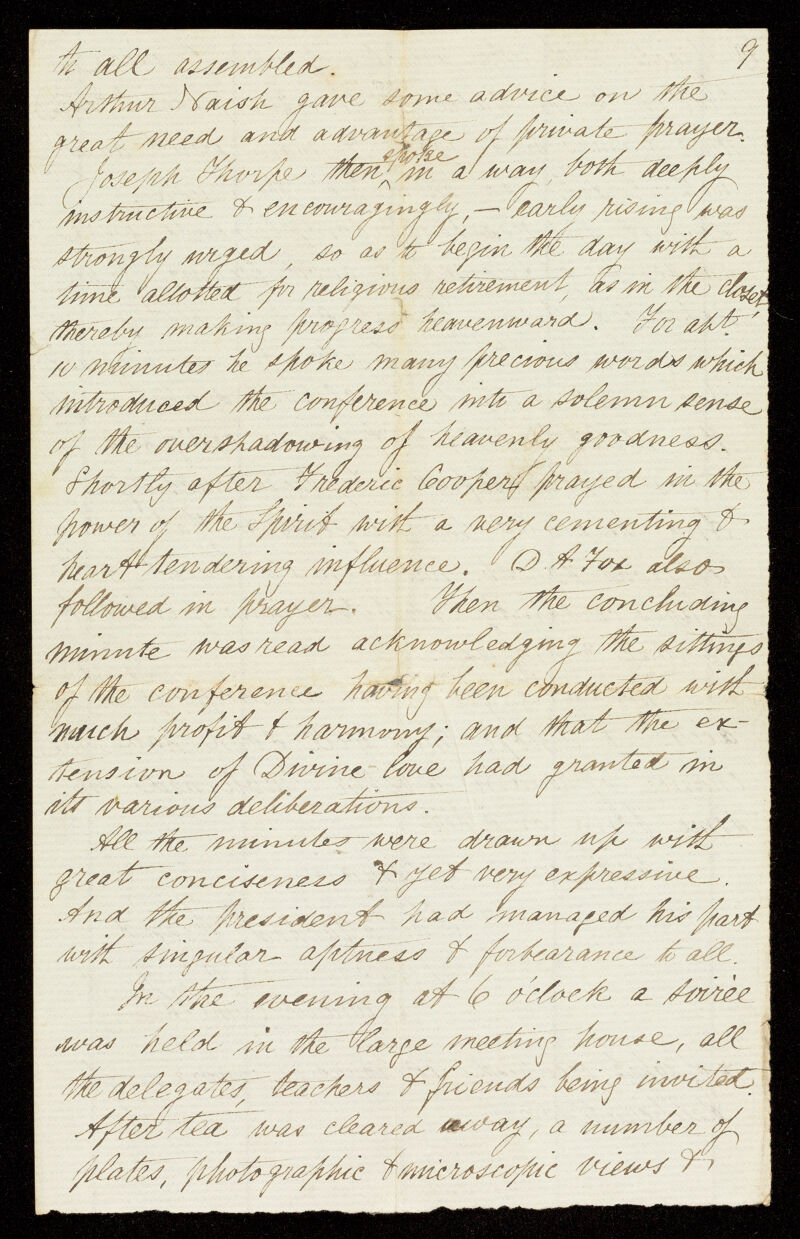 9
to all assembled.
Arthur Naish gave some advice on the
great need and advantage of private prayer.
Joseph Thorpe then ^spoke in a way both deeply
instructive & encouragingly, — early rising was
strongly urged, so as to begin the day with a
time allotted for religious retirement, as in the closet,
thereby making progress heavenward. For abt.
10 minutes he spoke many precious words which
introduced the conference into a solemn sense
of the overshadowing of heavenly goodness.
Shortly after Frederic Cooper prayed in the
power of the Spirit with a very cementing &
heart-tendering influence. D A Fox also
followed in prayer. Then the concluding
minute was read acknowledging the sittings
of the conference having been conducted with
much profit & harmony; and that the ex-
tension of Divine love had granted in
its various deliberations.
All the minutes were drawn up with
great conciseness & yet very expressive.
And the president had managed his part
with singular aptness & forbearance to all.
In the evening at 6 o'clock a soirèe
was held in the large meeting house, all
the delegates, teachers & friends being invited.
After tea was cleared away, a number of
plates, photographic & microscopic views &